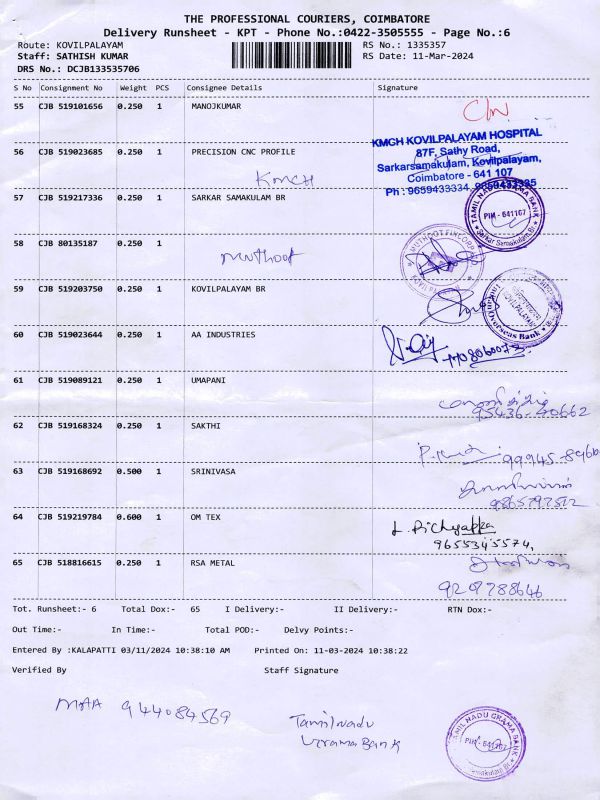 THE PROFESSIONAL COURIERS, COIMBATORE
Delivery Runsheet - KPT - Phone No.:0422-3505555 - Page No.:6
Route: KOVILPALAYAM RS No.: 1335357
Staff: SATHISH KUMAR RS Date: 11-Mar-2024
DRS No.: DCJB133535706
S No Consignment No Weight PCS Consignee Details Signature
55 CJB 519101656 0.250 1 MANOJKUMAR
KMCH KOVILPALAYAM HOSPITAL
87F, Sathy Road,
Sarkarsamakulam, Kovilpalayam,
Coimbatore - 641 107
Ph : 9659433334, 9659433335
56 CJB 519023685 0.250 1 PRECISION CNC PROFILE
KMCH
57 CJB 519217336 0.250 1 SARKAR SAMAKULAM BR
TAMIL NADU GRAMA BANK
PIN - 641107
Sarkar Samakulam Br.
58 CJB 80135187 0.250 1
Muthoot
MUTHOOT FINCORP
59 CJB 519203750 0.250 1 KOVILPALAYAM BR
KOVILPALAYAM
Indian Overseas Bank
60 CJB 519023644 0.250 1 AA INDUSTRIES
61 CJB 519089121 0.250 1 UMAPANI
95436-40662
62 CJB 519168324 0.250 1 SAKTHI
63 CJB 519168692 0.500 1 SRINIVASA
64 CJB 519219784 0.600 1 OM TEX
L. Pichyappa
9655345574,
65 CJB 518816615 0.250 1 RSA METAL
9207788646
Tot. Runsheet:- 6 Total Dox:- 65 I Delivery:- II Delivery:- RTN Dox:-
Out Time:- In Time:- Total POD:- Delvy Points:-
Entered By :KALAPATTI 03/11/2024 10:38:10 AM Printed On: 11-03-2024 10:38:22
Verified By Staff Signature
MAA 944084569
Tamilnadu
Grama Bank
TAMIL NADU GRAMA BANK
PIN - 641107
Samakulam Br.